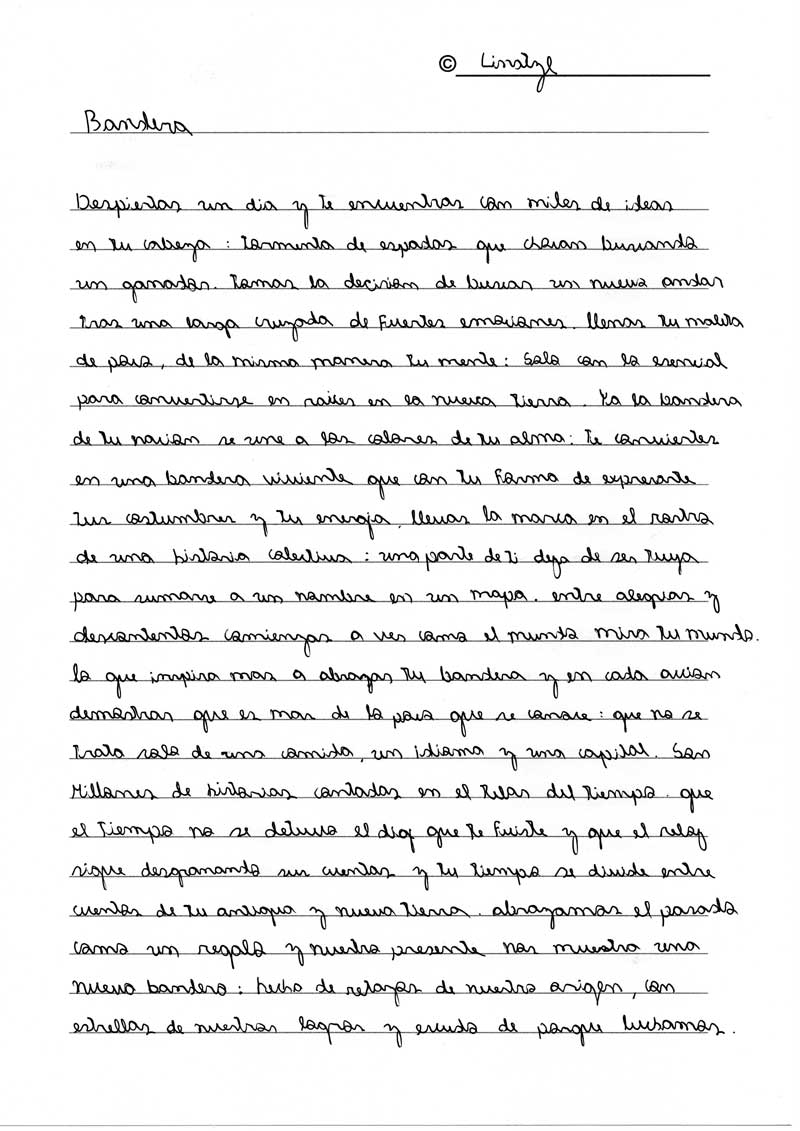 © Linatzl
Bandera
Despiertas un dia y te encuentras con miles de ideas
en tu cabeza : tormenta de espadas que chocan buscando
un ganador. Tomas la decision de buscar un nuevo andar
tras una larga cruzada de fuertes emociones. llenas tu maleta
de pais, de la misma manera tu mente: Solo con lo esencial
para convertirse en raices en la nueva tierra. Ya la bandera
de tu nacion se une a los colores de tu alma: te conviertes
en una bandera viviente que con tu forma de expresarte
tus costumbres y tu energia, llevas la marca en el rostro
de una historia colectiva : una parte de ti deja de ser tuya
para sumarse a un nombre en un mapa. entre alegrias y
descontentos comienzas a ver como el mundo mira tu mundo.
lo que inspira mas a abrazar tu bandera y en cada accion
demostras que es mas de lo pais que se conoce : que no se
trata solo de una comida, un idioma y una capital. Son
Millones de historias contadas en el Reloj del tiempo. que
el tiempo no se detuvo el dia que te fuiste y que el reloj
sigue desgranando sus cuentas y tu tiempo se divide entre
cuentas de tu antigua y nueva tierra. abrazamos el pasado
como un regalo y nuestro presente nos muestra una
nueva bandera : hecha de retazos de nuestro origen, con
estrellas de nuestros logros y escudo de porque luchamos.